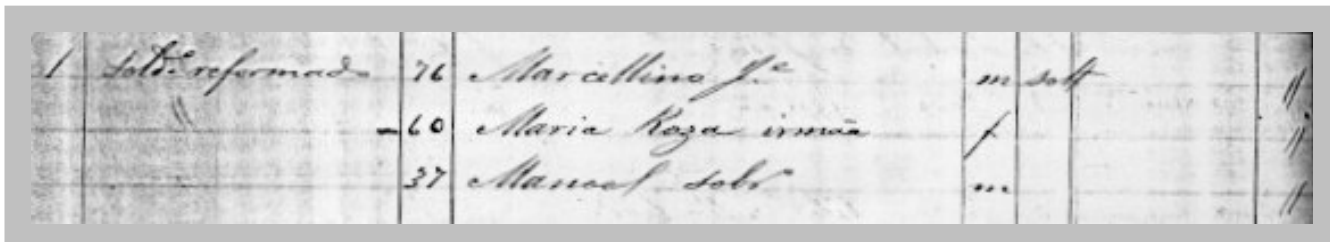 1 Sold.e reformado 76 Marcellino J.e m solt "
" 60 Maria Roza irmãa f "
37 Manoel sobr.o m "